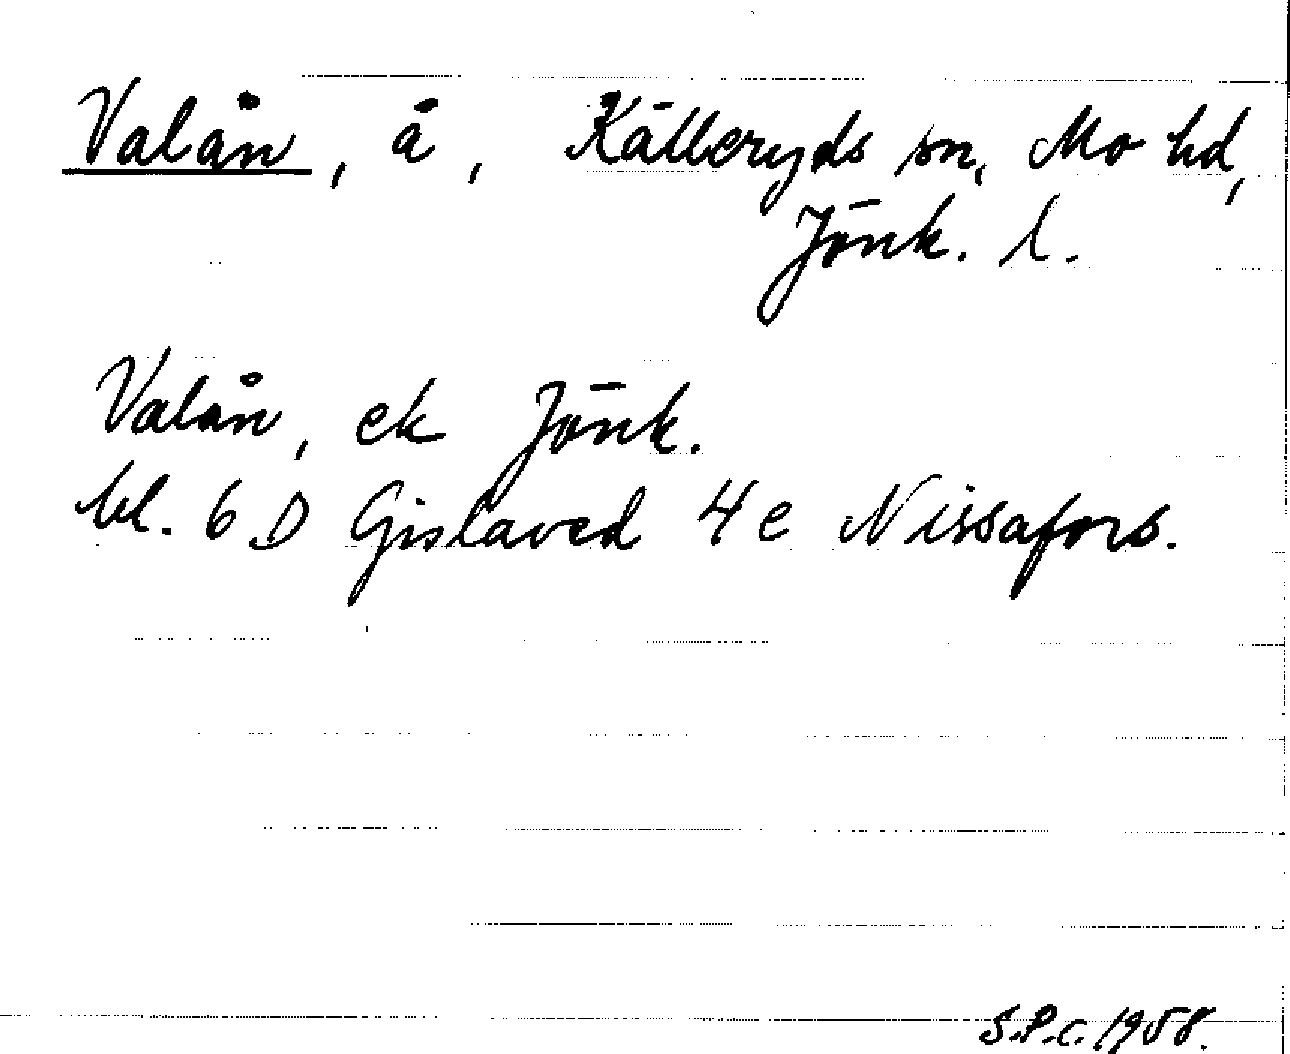 Valån, å, Källeryds sn, Mo hd,
Jönk. l.
Valån, ek Jönk.
bl. 6 D Gislaved 4 e Nissafors.
S.P.C. 1958.